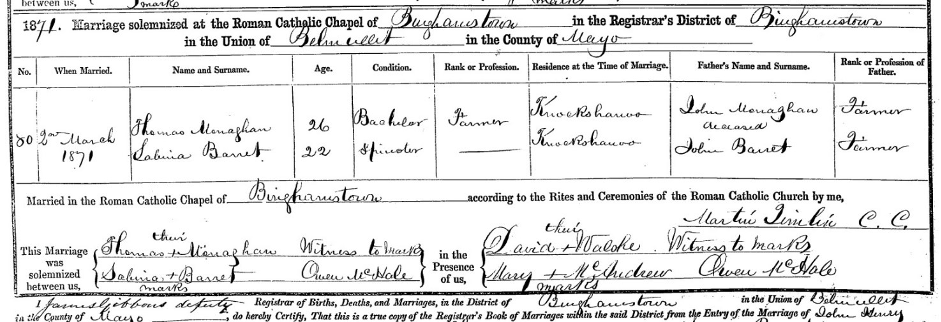 between us,
mark
marks
1871. Marriage solemnized at the Roman Catholic Chapel of Binghamstown in the Registrar's District of Binghamstown
in the Union of Belmullet in the County of Mayo
No. When Married. Name and Surname. Age. Condition. Rank or Profession. Residence at the Time of Marriage. Father's Name and Surname. Rank or Profession of Father.
80 2nd March 1871 Thomas Monaghan 26 Bachelor Farmer Knockshanvo John Monaghan deceased Farmer
Sabina Barret 22 Spinster Knockshanvo John Barret Farmer
Married in the Roman Catholic Chapel of Binghamstown according to the Rites and Ceremonies of the Roman Catholic Church by me,
Martin Timlin C. C.
This Marriage was solemnized between us, Thomas + Monaghan Sabina + Barret their marks Witness to marks Owen McHale in the Presence of us, David + Walshe Mary + McAndrew their marks Witness to marks Owen McHale
I James Gibbons deputy Registrar of Births, Deaths, and Marriages, in the District of Binghamstown in the Union of Belmullet
in the County of Mayo, do hereby Certify, That this is a true copy of the Registrar's Book of Marriages within the said District from the Entry of the Marriage of John Henry